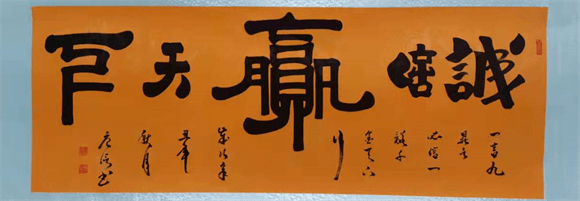 誠信贏天下
一言九
鼎言
必信一
諾千
金
行
歲次辛
丑年
秋月
書